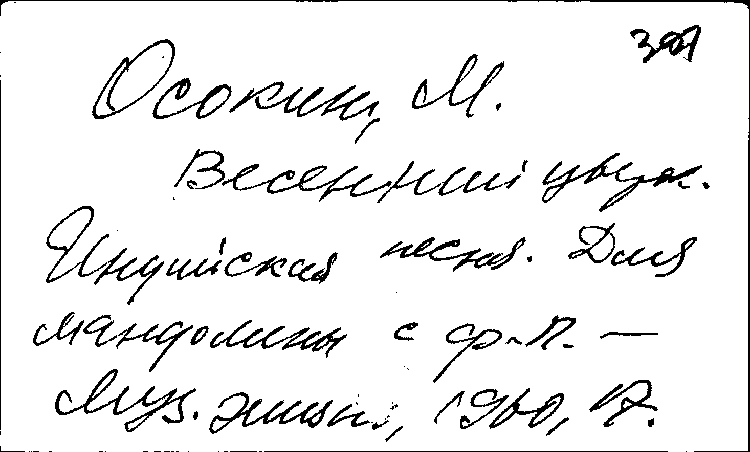 Осокин, М.
Весенний
Индийская песня. Для
мандолины с ф.-п. —
Муз. жизнь, 1960, 17.